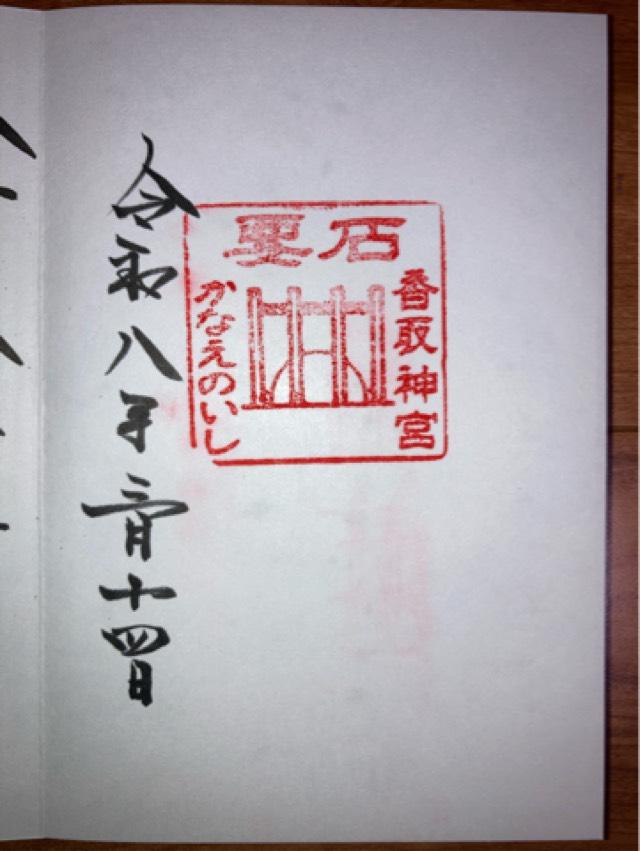 要石
香取神宮
かなえのいし
令和八年三月十四日